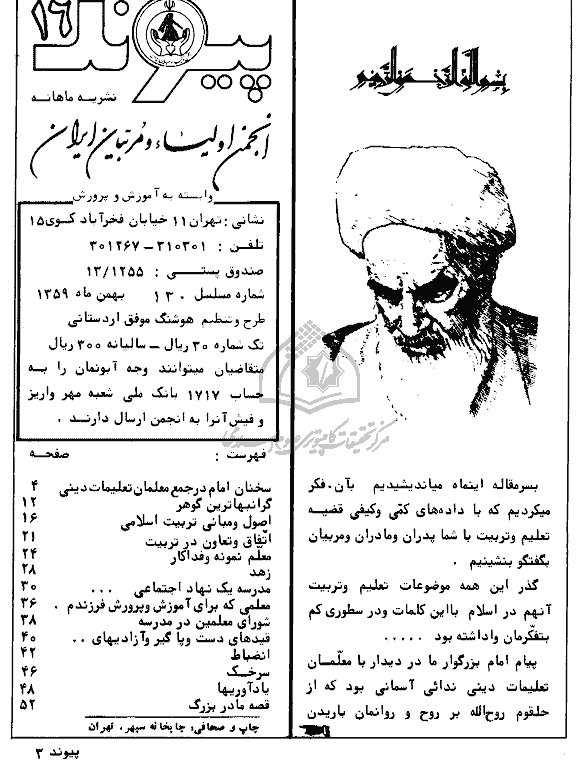 پیوند ۱۶
نشریه ماهانه
انجمن اولیاء و مربیان ایران
وابسته به آموزش و پرورش
نشانی : تهران ۱۱ خیابان فخرآباد کوی ۱۵
تلفن : ۳۱۰۳۰۱ – ۳۰۱۲۶۷
صندوق پستی : ۱۳/۱۲۵۵
شماره مسلسل ۱۳۰ بهمن ماه ۱۳۵۹
طرح و تنظیم هوشنگ موفق اردستانی
تک شماره ۳۰ ریال – سالیانه ۳۰۰ ریال
متقاضیان میتوانند وجه آبونمان را به
حساب ۱۷۱۷ بانک ملی شعبه مهر واریز
و فیش آنرا به انجمن ارسال دارند .
فهرست : صفحه
سخنان امام درجمع معلمان تعلیمات دینی ۴
گرانبهاترین گوهر ۱۲
اصول ومبانی تربیت اسلامی ۱۶
اتّفاق وتعاون در تربیت ۲۱
معلّم نمونه وفداکار ۲۴
زهد ۲۸
مدرسه یک نهاد اجتماعی ... ۳۰
معلمی که برای آموزش وپرورش فرزندم . ۳۶
شورای معلمین در مدرسه ۳۸
قیدهای دست وپا گیر وآزادیهای .. ۴۰
انضباط ۴۲
سرخک ۴۶
یادآوریها ۴۸
قصه مادر بزرگ ۵۲
چاپ و صحافی: چاپخانه سپهر، تهران
بسم الله الرحمن الرحیم
مرکز تحقیقات کامپیوتری علوم اسلامی
بسرمقاله اینماه میاندیشیدیم بآن.فکر
میکردیم که با داده‌های کمّی وکیفی قضیه
تعلیم وتربیت با شما پدران ومادران ومربیان
بگفتگو بنشینیم .
گذر این همه موضوعات تعلیم وتربیت
آنهم در اسلام بااین کلمات ودر سطوری کم
بتفکّرمان واداشته بود .....
پیام امام بزرگوار ما در دیدار با معلّمان
تعلیمات دینی ندائی آسمانی بود که از
حلقوم روح‌الله بر روح و روانمان باریدن
پیوند ۳